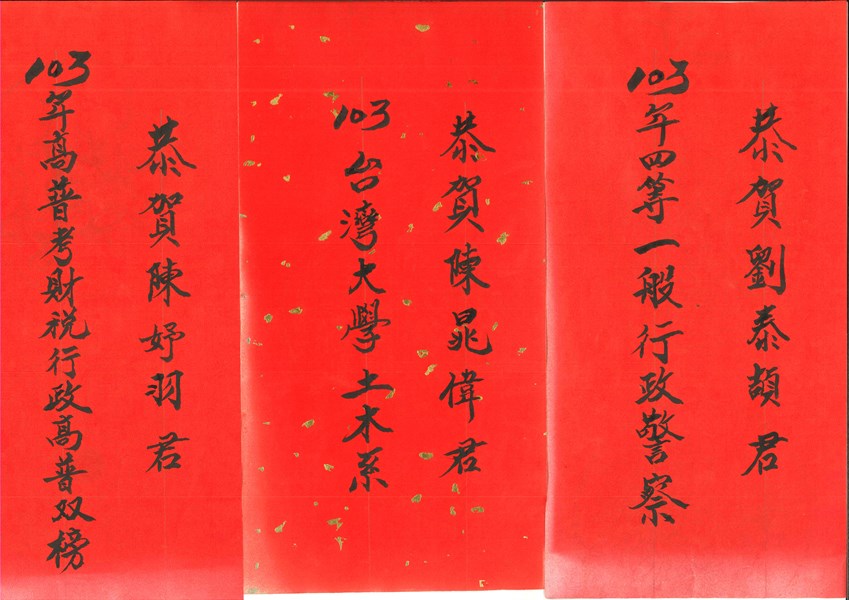 恭賀劉泰頡君
103年四等一般行政警察
恭賀陳晁偉君
103台灣大學土木系
恭賀陳妤羽君
103年高普考財税行政高普双榜